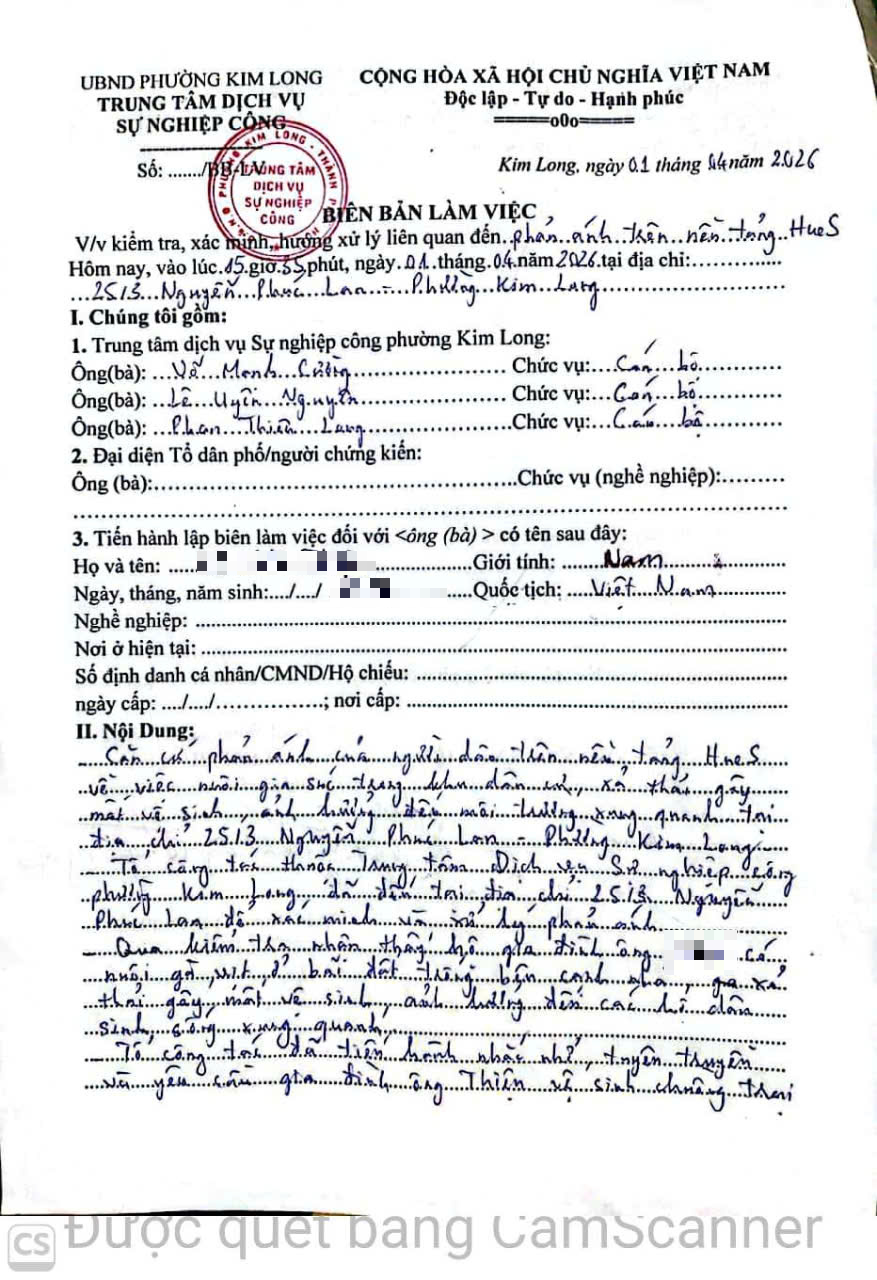 UBND PHƯỜNG KIM LONG
TRUNG TÂM DỊCH VỤ
SỰ NGHIỆP CÔNG
Số: ......./BB-LV
CỘNG HÒA XÃ HỘI CHỦ NGHĨA VIỆT NAM
Độc lập - Tự do - Hạnh phúc
======o0o======
Kim Long, ngày 01 tháng 04 năm 2026
TRUNG TÂM
DỊCH VỤ
SỰ NGHIỆP
CÔNG
BIÊN BẢN LÀM VIỆC
V/v kiểm tra, xác minh, hướng xử lý liên quan đến phản ánh trên nền tảng HueS
Hôm nay, vào lúc 15 giờ 35 phút, ngày 01 tháng 04 năm 2026 tại địa chỉ:
25/3 Nguyễn Phúc Lan - Phường Kim Long
I. Chúng tôi gồm:
1. Trung tâm dịch vụ Sự nghiệp công phường Kim Long:
Ông(bà): Võ Mạnh Cường Chức vụ: Cán bộ
Ông(bà): Lê Uyên Nguyên Chức vụ: Cán bộ
Ông(bà): Phan Thiên Long Chức vụ: Cán bộ
2. Đại diện Tổ dân phố/người chứng kiến:
Ông (bà): Chức vụ (nghề nghiệp):
3. Tiến hành lập biên làm việc đối với <ông (bà) > có tên sau đây:
Họ và tên: Giới tính: Nam
Ngày, tháng, năm sinh:..../..../ Quốc tịch: Việt Nam
Nghề nghiệp:
Nơi ở hiện tại:
Số định danh cá nhân/CMND/Hộ chiếu:
ngày cấp: ..../..../ ; nơi cấp:
II. Nội Dung:
Căn cứ phản ánh của người dân trên nền tảng HueS
về việc nuôi gia súc trong khu dân cư, xả thải gây
mất vệ sinh, ảnh hưởng đến môi trường xung quanh tại
địa chỉ 25/3 Nguyễn Phúc Lan - Phường Kim Long.
Tổ công tác thuộc Trung tâm Dịch vụ Sự nghiệp công
phường Kim Long đã đến tại địa chỉ 25/3 Nguyễn
Phúc Lan để xác minh và xử lý phản ánh
Qua kiểm tra nhận thấy hộ gia đình ông có
nuôi gà, vịt, ở bãi đất trống bên cạnh nhà, xả
thải gây mất vệ sinh, ảnh hưởng đến các hộ dân
sinh sống xung quanh.
Tổ công tác đã tiến hành nhắc nhở, tuyên truyền
và yêu cầu gia đình ông Thiện vệ sinh chuồng trại
CS Được quét bằng CamScanner